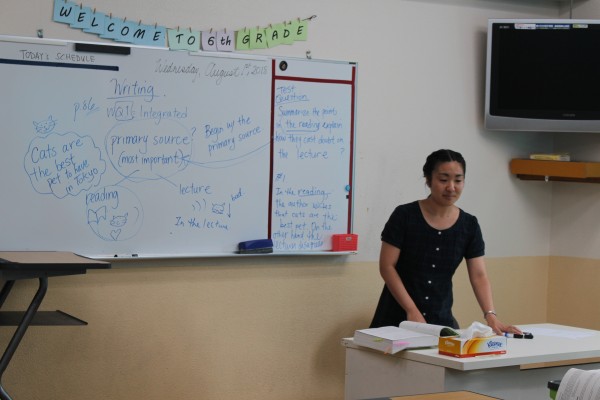 WELCOME TO 6th GRADE
TODAY'S SCHEDULE
Wednesday, August
Writing
Q1: Integrated
primary source?
(most important)
Begin w/ the
primary source
Cats are
the best
pet to have
in Tokyo
reading
lecture
In the lecture
Test
Question
Summarize the points
in the reading explain
how they cast doubt on
the lecture?
In the reading,
the author
that cats are the
best pet. On the
other hand